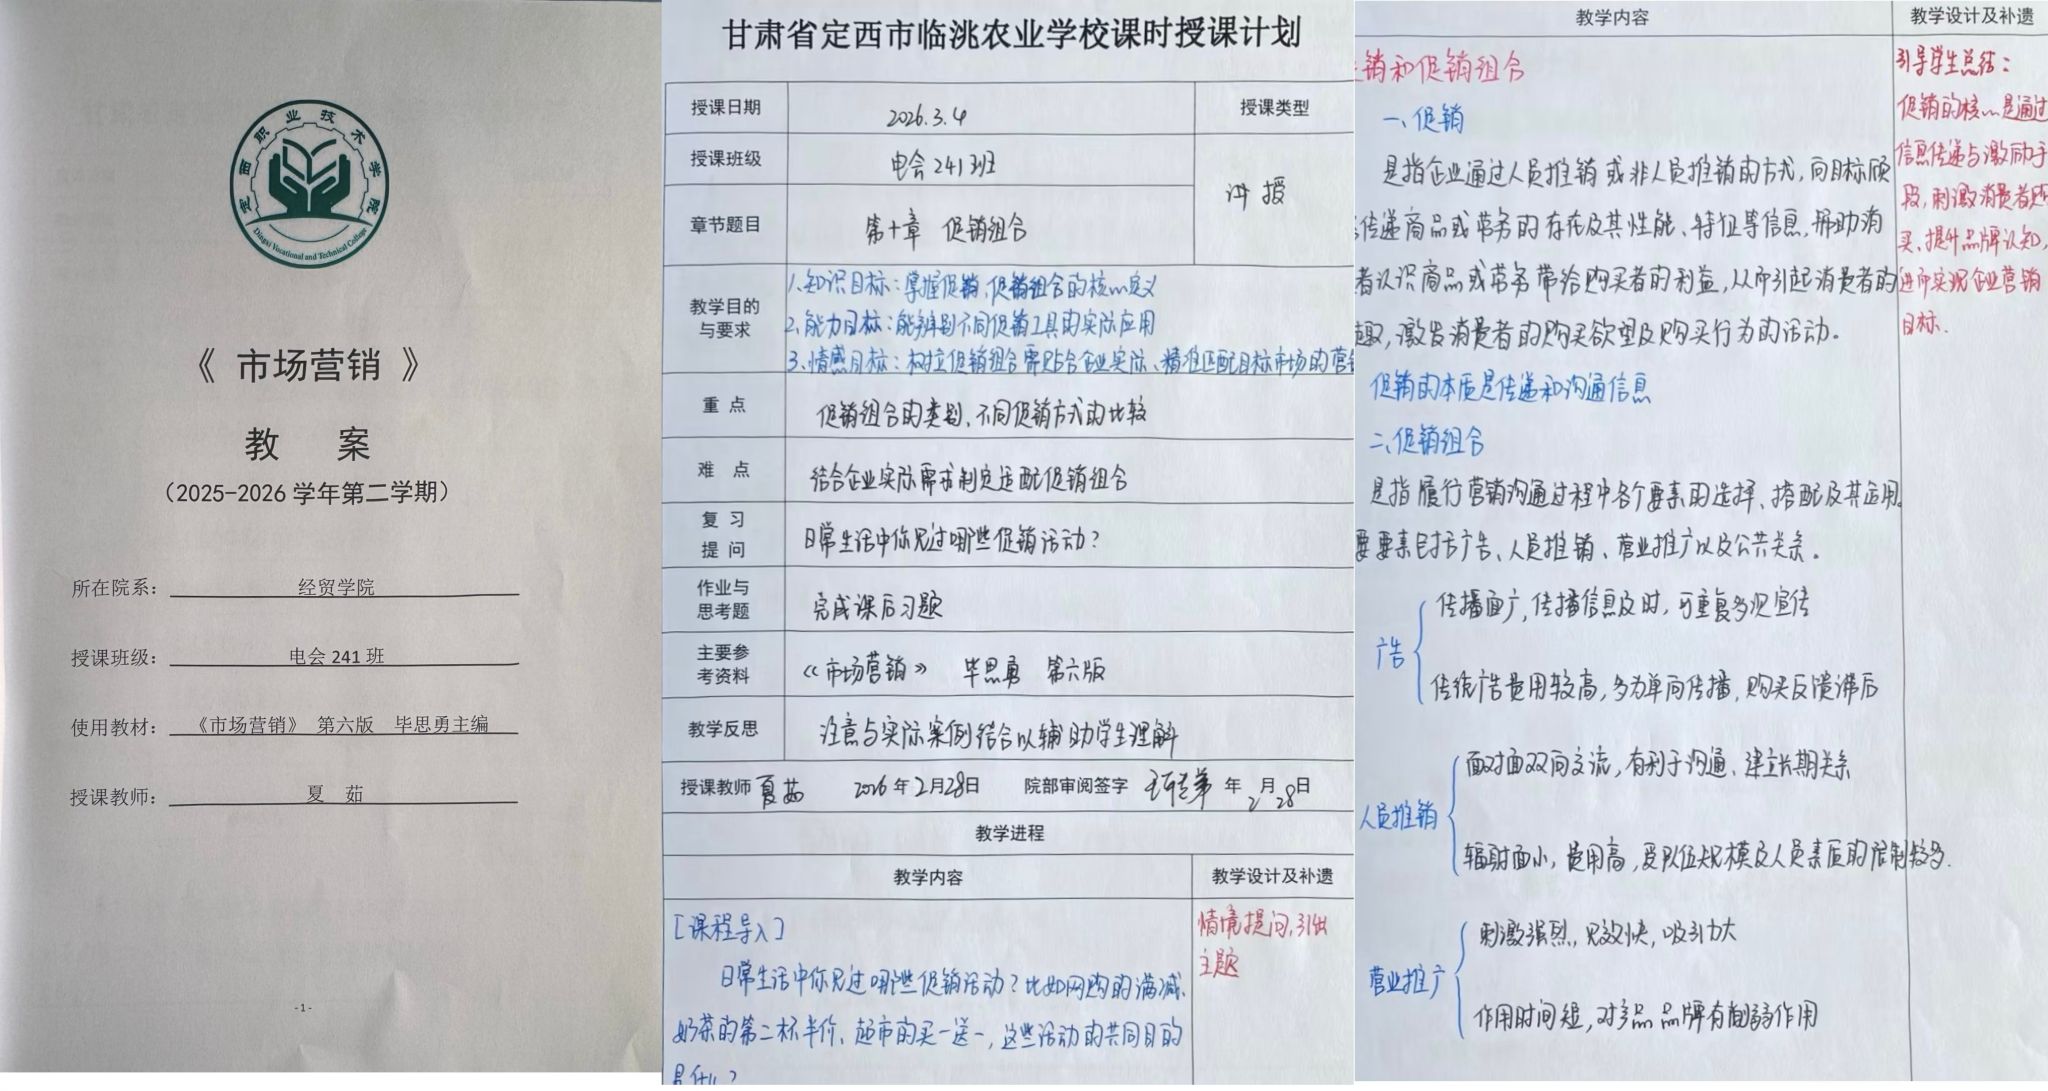 定西职业技术学院
Dingxi Vocational and Technical College
《 市场营销 》
教 案
（2025-2026 学年第二学期）
所在院系： 经贸学院
授课班级： 电会 241 班
使用教材： 《市场营销》 第六版 毕思勇主编
授课教师： 夏 茹
-1-
甘肃省定西市临洮农业学校课时授课计划
授课日期 2026.3.4 授课类型
授课班级 电会241班
讲授
章节题目 第十章 促销组合
教学目的与要求
1.知识目标：掌握促销,促销组合的核心定义
2.能力目标：能辨别不同促销工具的实际应用
3.情感目标：树立促销组合需贴合企业实际、精准匹配目标市场的营销
重 点 促销组合的类别、不同促销方式的比较
难 点 结合企业实际需求制定适配促销组合
复 习
提 问
日常生活中你见过哪些促销活动?
作业与
思考题
完成课后习题
主要参
考资料
《市场营销》 毕思勇 第六版
教学反思 注意与实际案例结合以辅助学生理解
授课教师 夏茹 2026年2月28日 院部审阅签字 年2月28日
教学进程
教学内容 教学设计及补遗
[课程导入]
日常生活中你见过哪些促销活动?比如网购的满减、
奶茶的第二杯半价、超市的买一送一,这些活动的共同目的
是什么?
情境提问,引出
主题
教学内容 教学设计及补遗
销和促销组合
一、促销
是指企业通过人员推销或非人员推销的方式,向目标顾
传递商品或劳务的存在及其性能、特征等信息,帮助消
者认识商品或劳务带给购买者的利益,从而引起消费者的
趣,激发消费者的购买欲望及购买行为的活动。
促销的本质是传递和沟通信息
二、促销组合
是指履行营销沟通过程中各个要素的选择、搭配及其运用。
要要素包括广告、人员推销、营业推广以及公共关系。
广告
传播面广,传播信息及时,可重复多次宣传
传统广告费用较高,多为单向传播,购买反馈滞后
人员推销
面对面双向交流,有利于沟通、建立长期关系
辐射面小,费用高,受队伍规模及人员素质的限制较多.
营业推广
刺激强烈,见效快,吸引力大
作用时间短,对产品品牌有削弱作用
引导学生总结：
促销的核心是通过
信息传递与激励手
段,刺激消费者购
买、提升品牌认知,
进而实现企业营销
目标.